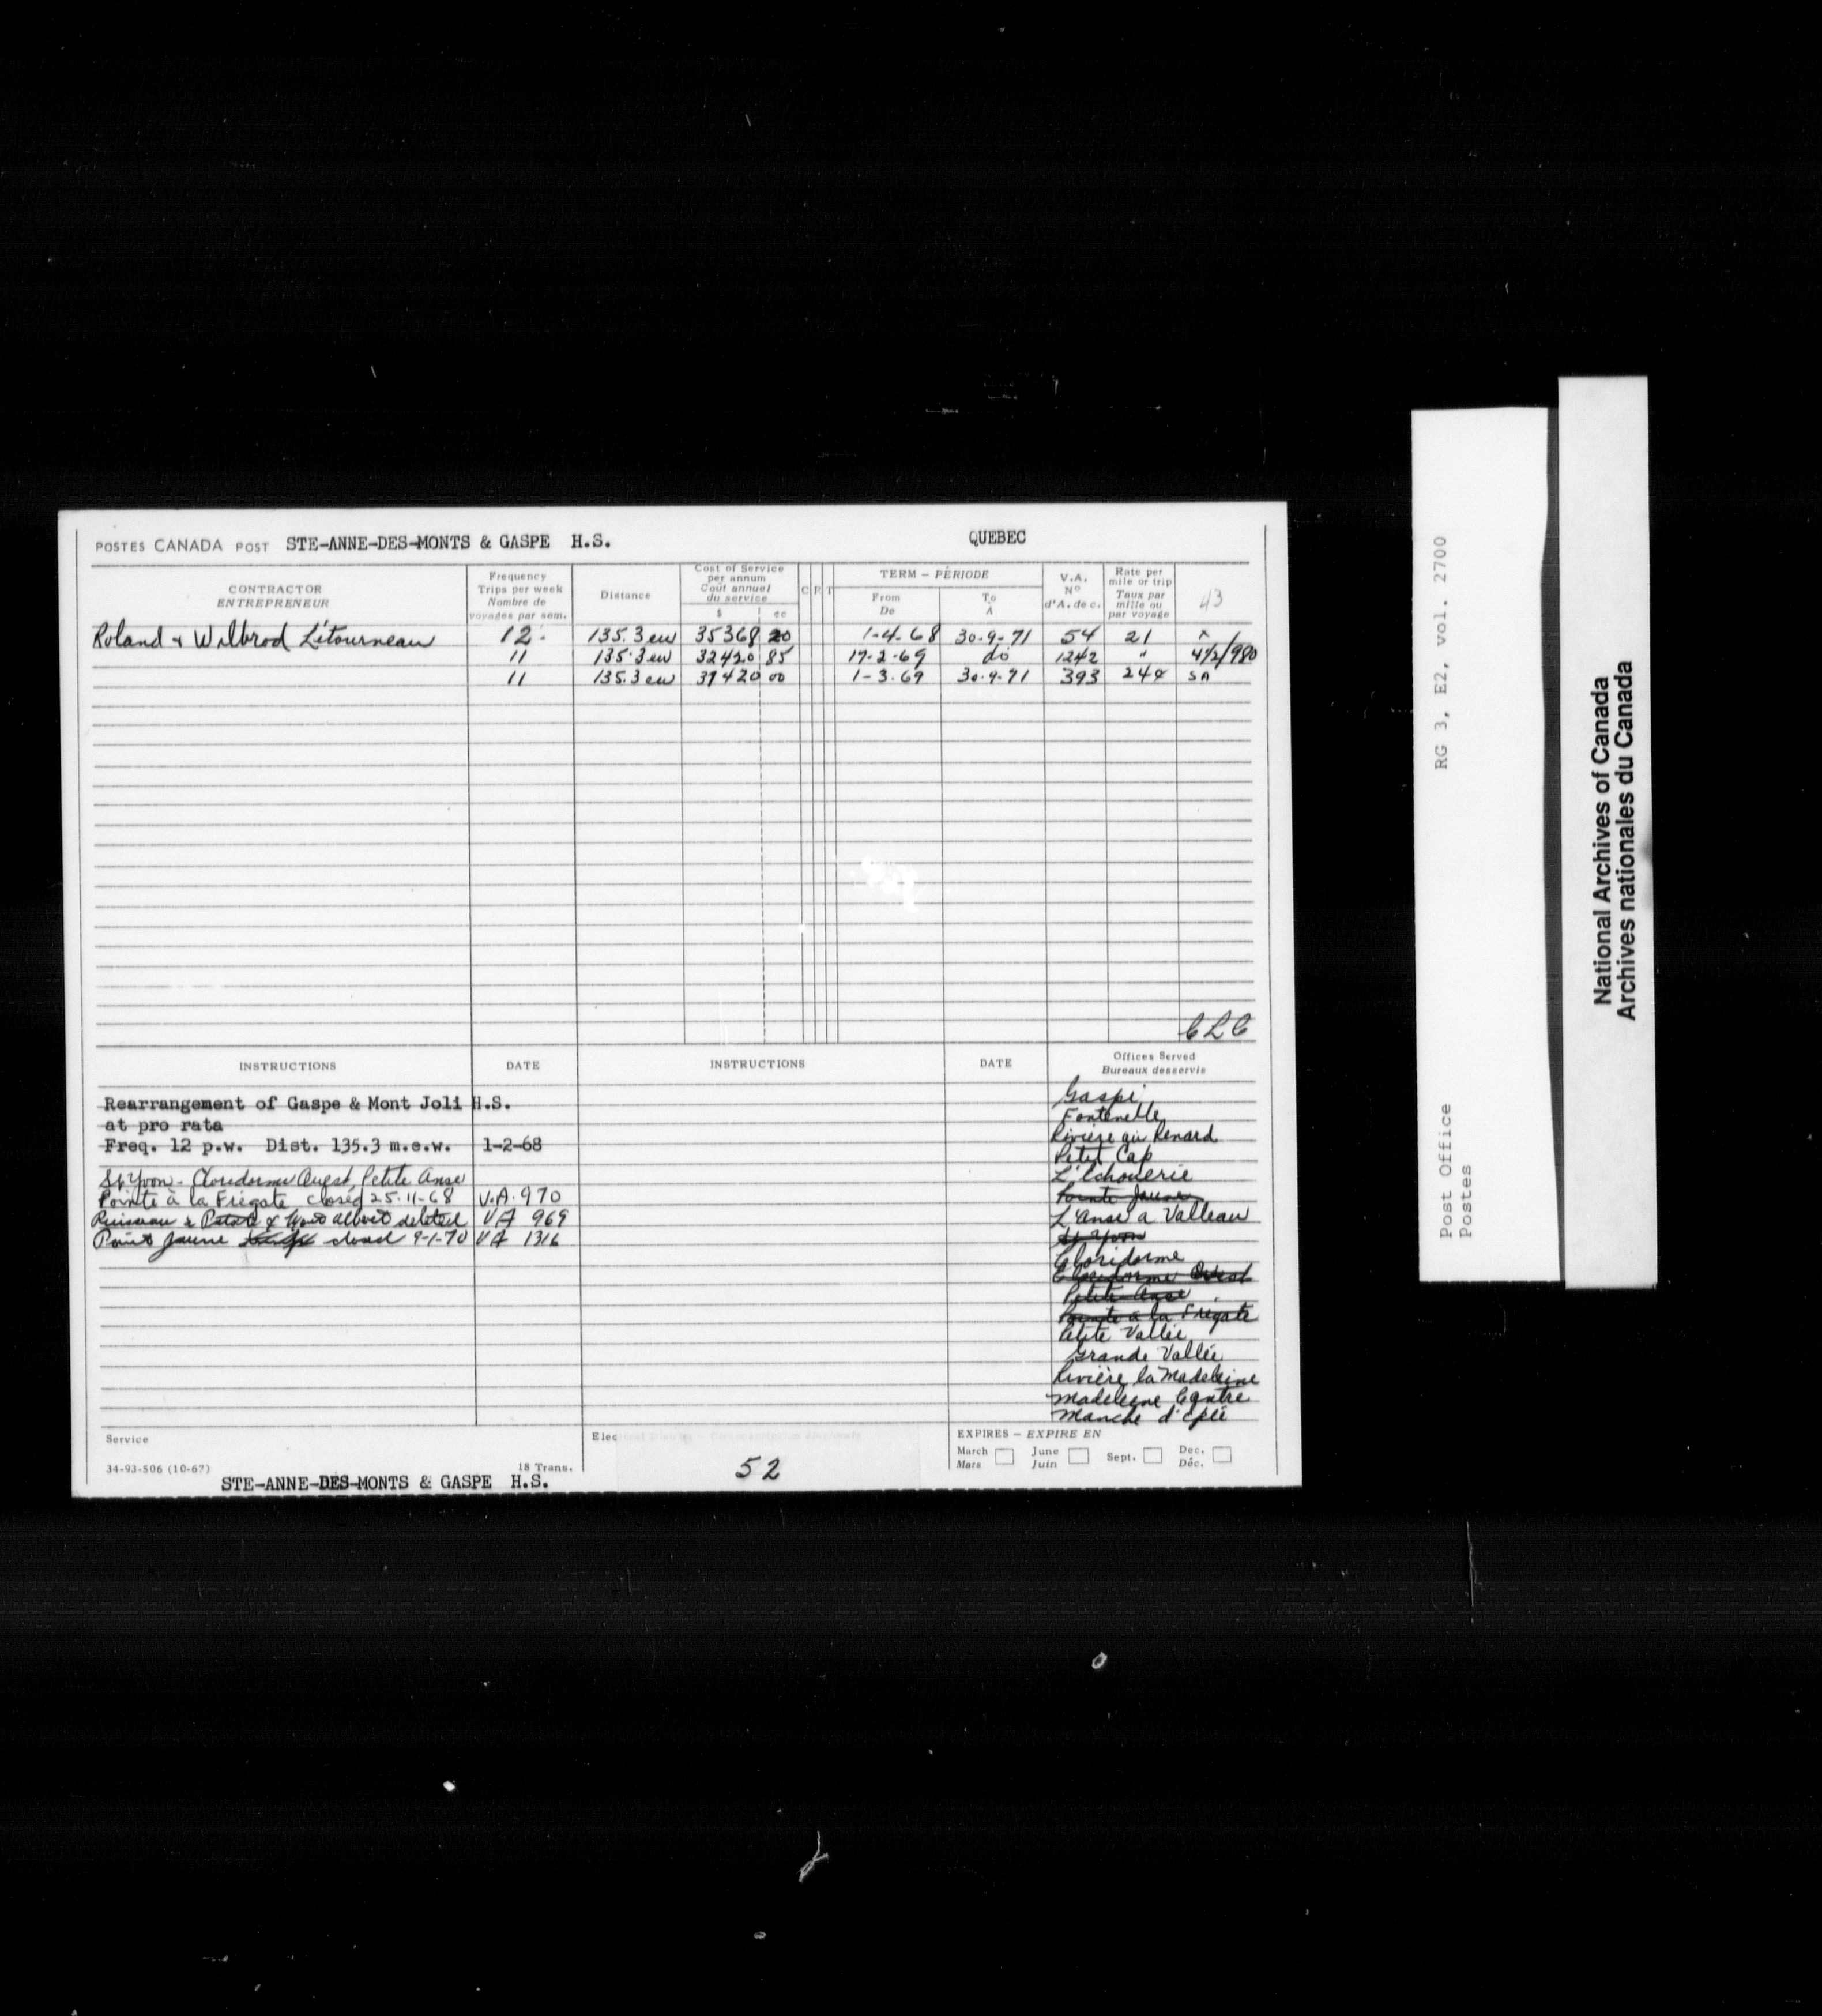 POSTES CANADA POST STE-ANNE-DES-MONTS & GASPE H.S. QUEBEC
CONTRACTOR
ENTREPRENEUR
Frequency
Trips per week
Nombre de
voyages par sem.
Distance
Cost of Service
per annum
Coût annuel
du service
$ cc
C P T
TERM – PÉRIODE
From
De
To
A
V.A.
Nº
d'A. de c.
Rate per
mile or trip
Taux par
mille ou
par voyage
43
Roland & Wilbrod Létourneau 12 135.3 ew 35368 20 1-4-68 30-9-71 54 21 x
11 135.3 ew 32420 85 17-2-69 do 1242 " 4½/980
11 135.3 ew 37420 00 1-3-69 30-9-71 393 24¢ SA
CLC
INSTRUCTIONS DATE INSTRUCTIONS DATE Offices Served
Bureaux desservis
Rearrangement of Gaspe & Mont Joli H.S.
at pro rata
Freq. 12 p.w. Dist. 135.3 m.e.w. 1-2-68
St Yvon - Cloridorme Ouest, Petite Anse
Pointe à la Frégate closed 25-11-68 V.A. 970
Ruisseau à & Mont Albert deleted VA 969
Point Jaune closed 9-1-70 VA 1316
Gaspé
Fontenelle
Rivière au Renard
Petit Cap
L'Echouerie
Pointe Jaune
L'Anse a Valleau
St Yvon
Cloridorme
Cloridorme Ouest
Petite Anse
Pointe à la Frégate
Petite Vallée
Grande Vallée
Rivière la Madeleine
Madeleine Centre
Manche d'Epée
Service
34-93-506 (10-67) 18 Trans.
STE-ANNE-DES-MONTS & GASPE H.S.
Elec
52
EXPIRES – EXPIRE EN
March
Mars
June
Juin
Sept.
Dec.
Déc.
RG 3, E2, vol. 2700
Post Office
Postes
National Archives of Canada
Archives nationales du Canada